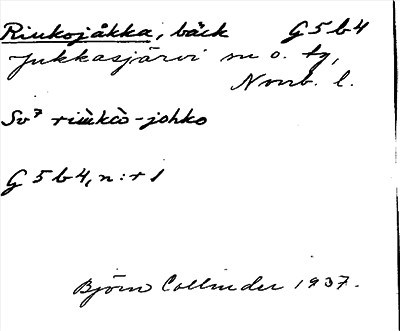 Riukojåkka, bäck G5b4
Jukkasjärvi sn o. tg,
Norrb. l.
Sv⁷ riukò-johko
G5b4, n:r 1
Björn Collinder 1937.